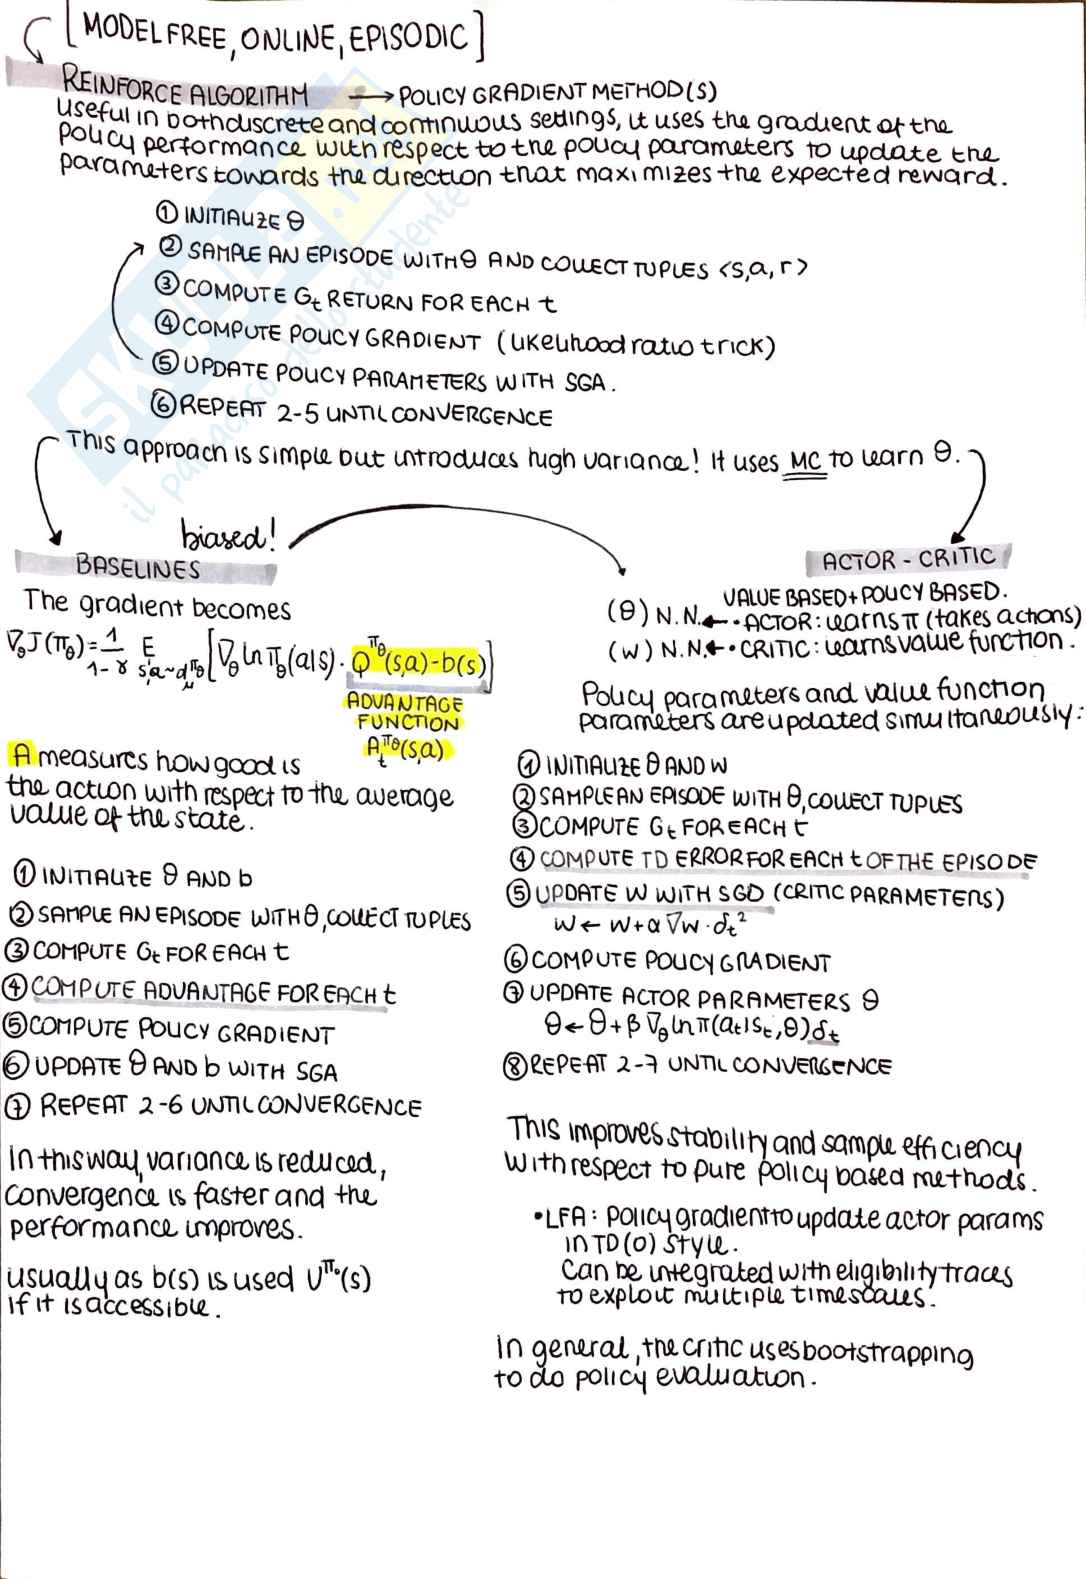 [MODEL FREE, ONLINE, EPISODIC]
REINFORCE ALGORITHM → POLICY GRADIENT METHOD(S)
useful in both discrete and continuous settings, it uses the gradient of the
policy performance with respect to the policy parameters to update the
parameters towards the direction that maximizes the expected reward.
① INITIALIZE θ
② SAMPLE AN EPISODE WITH θ AND COLLECT TUPLES <s,a,r>
③ COMPUTE Gt RETURN FOR EACH t
④ COMPUTE POLICY GRADIENT (likelihood ratio trick)
⑤ UPDATE POLICY PARAMETERS WITH SGA.
⑥ REPEAT 2-5 UNTIL CONVERGENCE
This approach is simple but introduces high variance! It uses MC to learn θ.
biased!
BASELINES
The gradient becomes
∇θJ(πθ) = 1/(1-γ) E s,a~dμ^πθ [∇θ ln πθ(a|s) · Q^πθ(s,a) - b(s)]
ADVANTAGE
FUNCTION
At^πθ(s,a)
A measures how good is
the action with respect to the average
value of the state.
① INITIALIZE θ AND b
② SAMPLE AN EPISODE WITH θ, COLLECT TUPLES
③ COMPUTE Gt FOR EACH t
④ COMPUTE ADVANTAGE FOR EACH t
⑤ COMPUTE POLICY GRADIENT
⑥ UPDATE θ AND b WITH SGA
⑦ REPEAT 2-6 UNTIL CONVERGENCE
In this way, variance is reduced,
convergence is faster and the
performance improves.
usually as b(s) is used V^πθ(s)
if it is accessible.
ACTOR - CRITIC
VALUE BASED + POLICY BASED.
(θ) N.N. ← • ACTOR: learns π (takes actions)
(w) N.N. ← • CRITIC: learns value function.
Policy parameters and value function
parameters are updated simultaneously:
① INITIALIZE θ AND w
② SAMPLE AN EPISODE WITH θ, COLLECT TUPLES
③ COMPUTE Gt FOR EACH t
④ COMPUTE TD ERROR FOR EACH t OF THE EPISODE
⑤ UPDATE w WITH SGD (CRITIC PARAMETERS)
w ← w + α ∇w · δt²
⑥ COMPUTE POLICY GRADIENT
⑦ UPDATE ACTOR PARAMETERS θ
θ ← θ + β ∇θ ln π(at|st, θ) δt
⑧ REPEAT 2-7 UNTIL CONVERGENCE
This improves stability and sample efficiency
with respect to pure policy based methods.
• LFA: Policy gradient to update actor params
in TD(0) style.
Can be integrated with eligibility traces
to exploit multiple timescales.
In general, the critic uses bootstrapping
to do policy evaluation.
SKUOLA.net
il paradiso dello studente